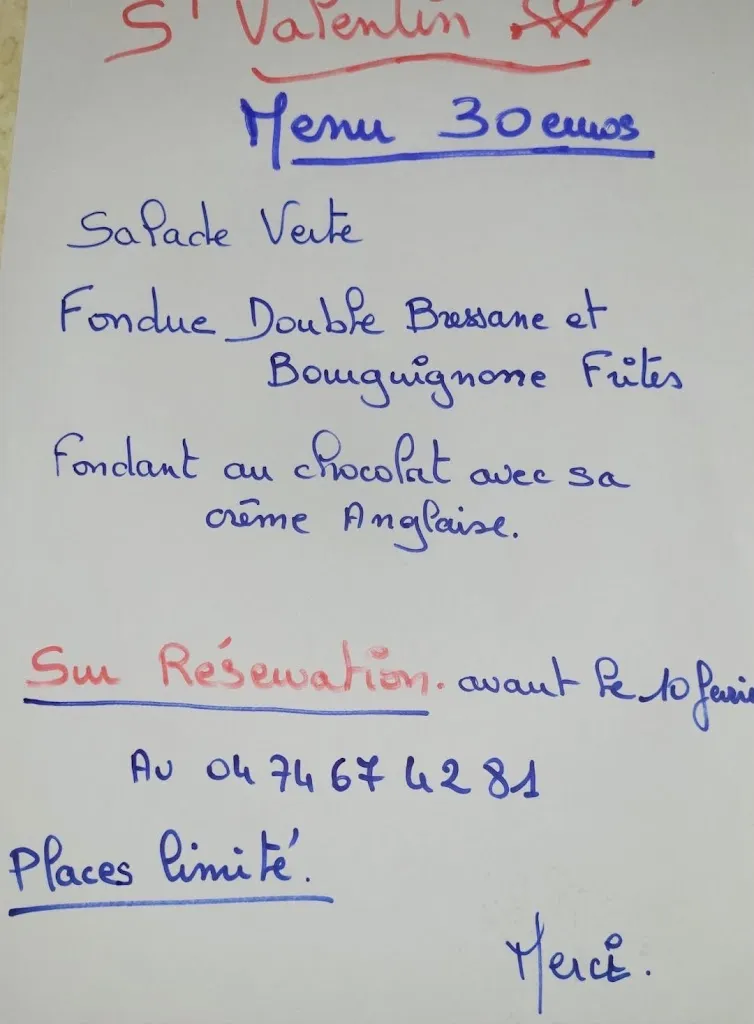 St Valentin
Menu 30 euros
Salade Verte
Fondue Double Bressane et
Bourguignonne Frites
Fondant au chocolat avec sa
crème Anglaise.
Sur Réservation. avant le 10 févrie
Au 04 74 67 42 81
Places limité.
Merci.